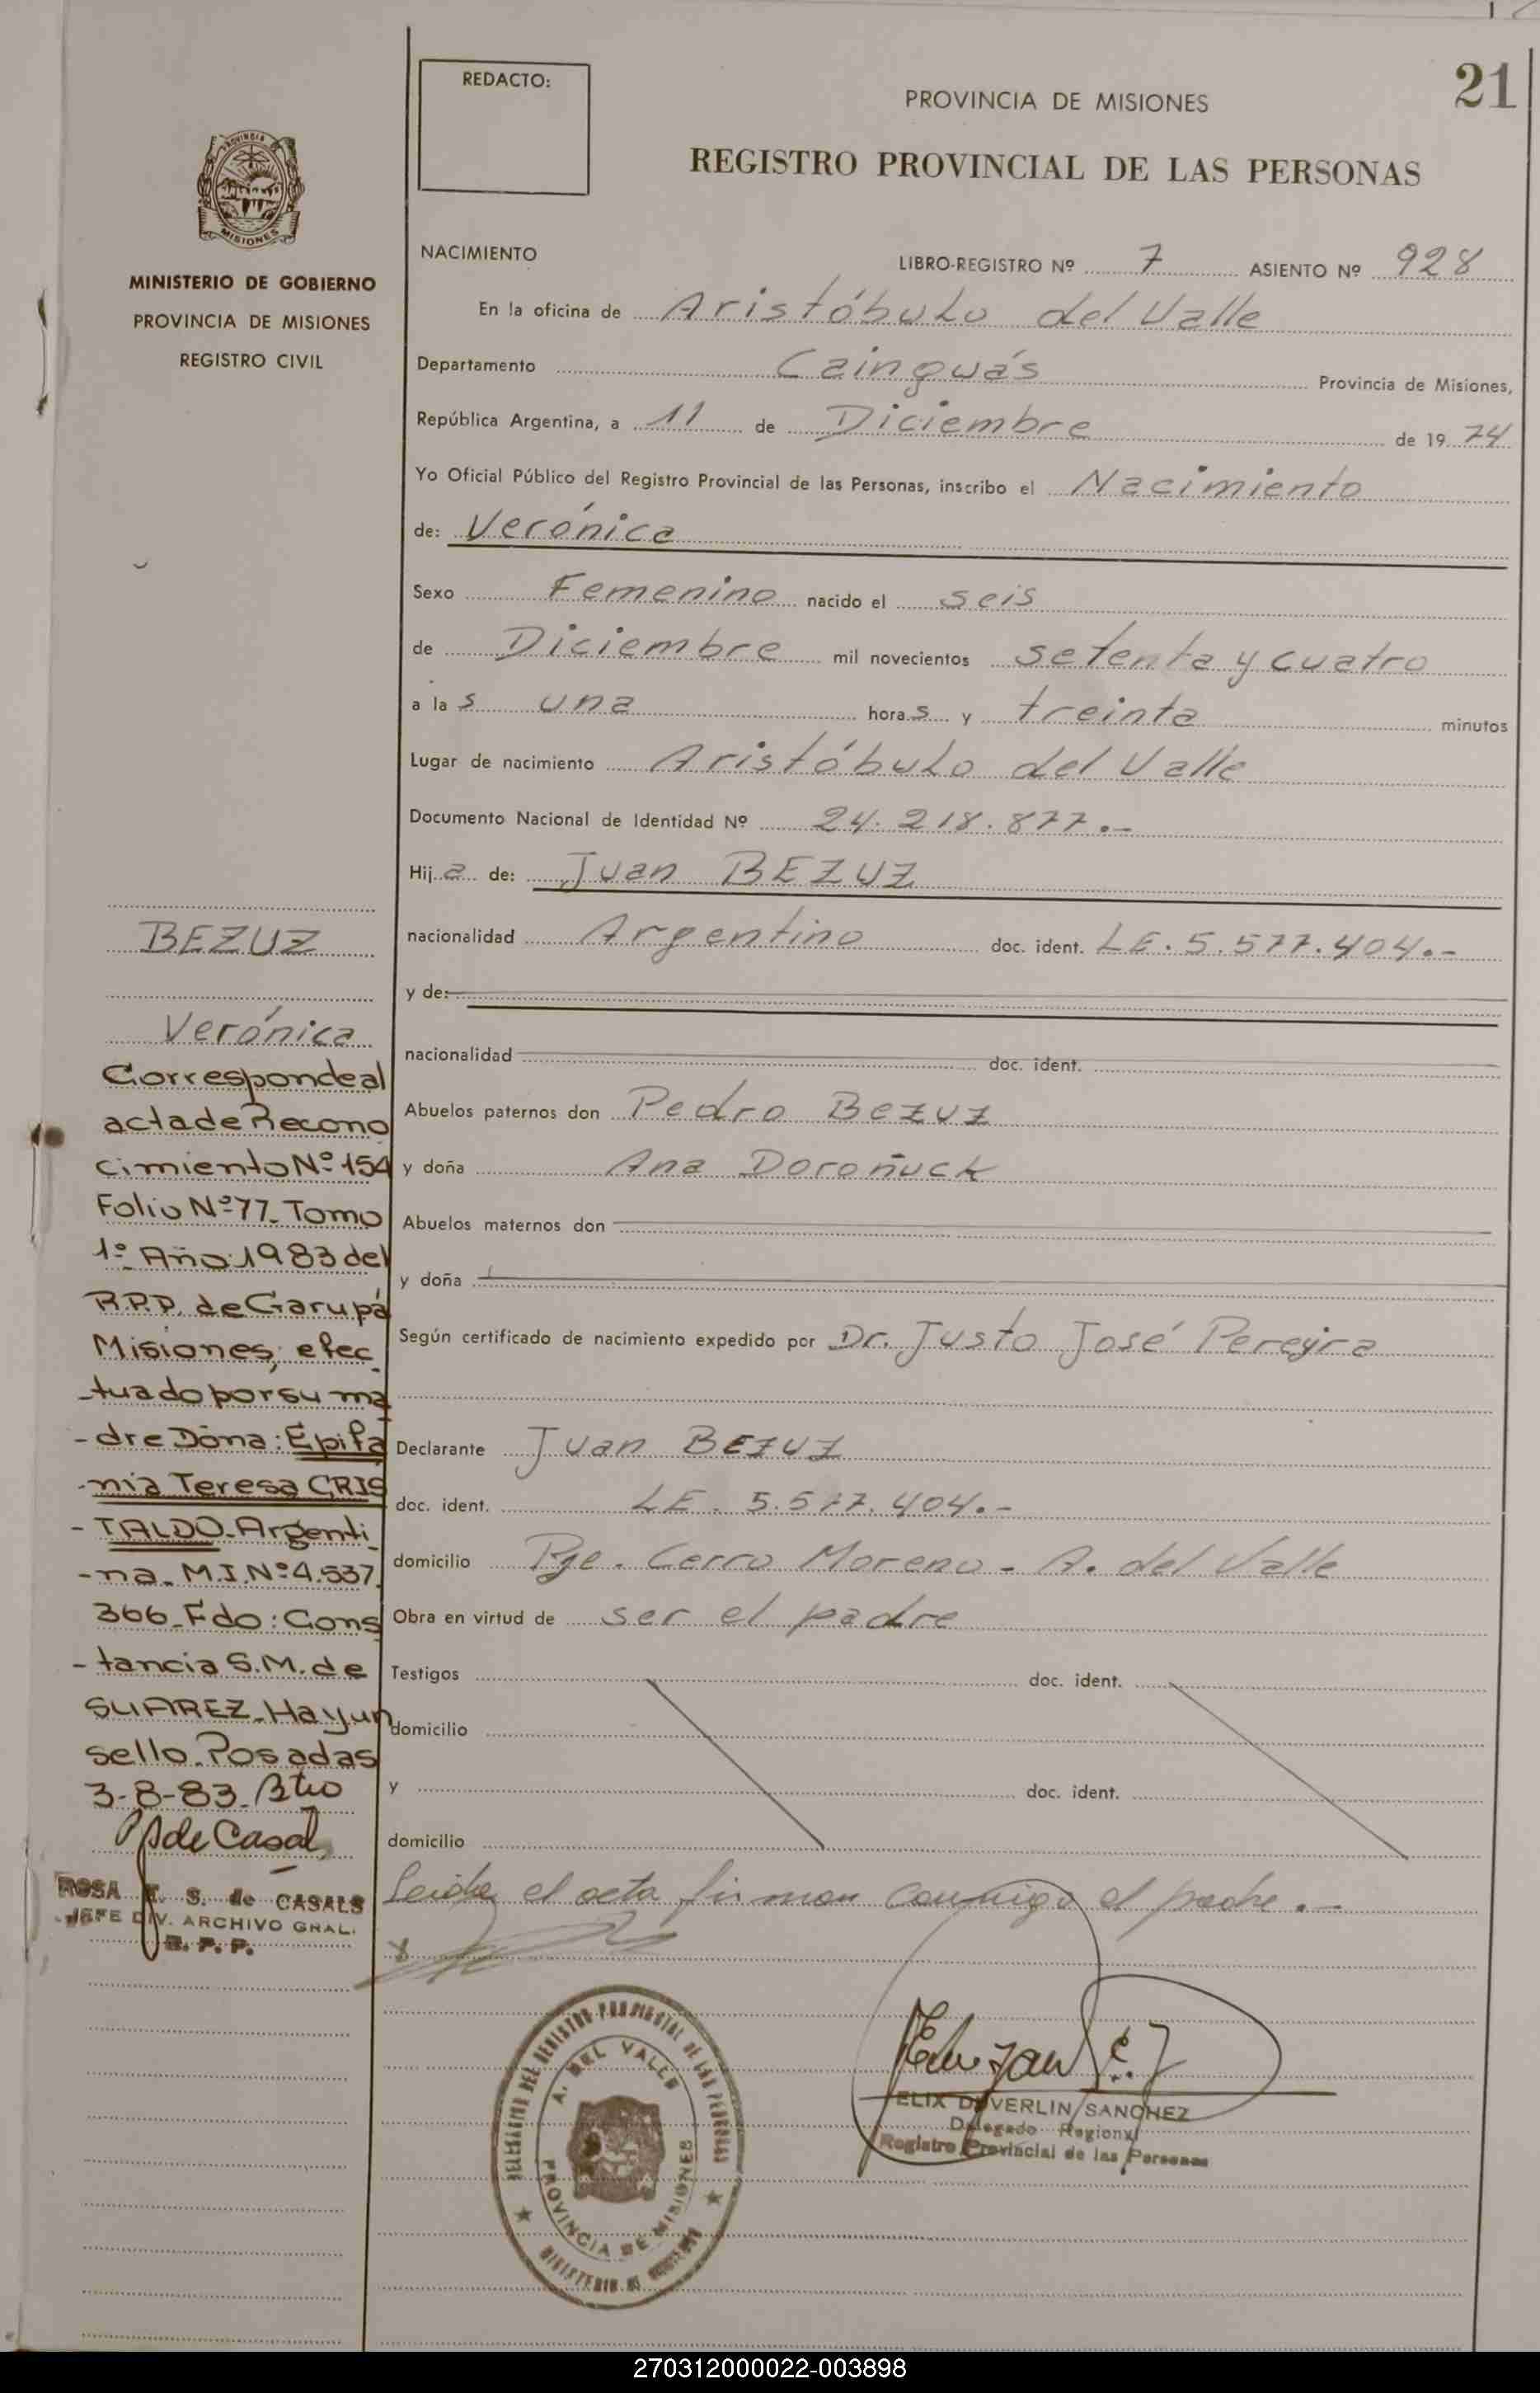 21
REDACTO:
PROVINCIA DE MISIONES
REGISTRO PROVINCIAL DE LAS PERSONAS
PROVINCIA
MISIONES
MINISTERIO DE GOBIERNO
PROVINCIA DE MISIONES
REGISTRO CIVIL
NACIMIENTO LIBRO-REGISTRO Nº 7 ASIENTO Nº 928
En la oficina de Aristóbulo del Valle
Departamento Cainguás Provincia de Misiones,
República Argentina, a 11 de Diciembre de 1974
Yo Oficial Público del Registro Provincial de las Personas, inscribo el Nacimiento
de: Verónica
Sexo Femenino nacido el seis
de Diciembre mil novecientos setenta y cuatro
a las una horas y treinta minutos
Lugar de nacimiento Aristóbulo del Valle
Documento Nacional de Identidad Nº 24.218.877.-
Hija de: Juan BEZUZ
nacionalidad Argentino doc. ident. LE. 5.577.404.-
y de:
nacionalidad doc. ident.
Abuelos paternos don Pedro Bezuz
y doña Ana Doroñuck
Abuelos maternos don
y doña
Según certificado de nacimiento expedido por Dr. Justo José Pereyra
Declarante Juan BEZUZ
doc. ident. LE. 5.577.404.-
domicilio Pje. Cerro Moreno - A. del Valle
Obra en virtud de ser el padre
Testigos doc. ident.
domicilio
y doc. ident.
domicilio
Leida el acta firman conmigo el padre.-
BEZUZ
Verónica
Corresponde al
acta de Recono
cimiento Nº 154
Folio Nº 77- Tomo
1º Año 1983 del
R.P.P. de Garupá
Misiones, efec
-tuado por su ma
-dre Doña: Epifa
-nia Teresa CRIS
-TALDO- Argenti
-na- M.I. Nº 4.537.
366- Fdo: Cons
-tancia S.M. de
SUAREZ- Hay un
sello- Posadas
3-8-83-
de Casals
ROSA S. de CASALS
JEFE DIV. ARCHIVO GRAL.
R. P. P.
DEL REGISTRO PROVINCIAL DE LAS PERSONAS
A. DEL VALLE
PROVINCIA DE MISIONES
MINISTERIO DE GOBIERNO
FELIX DUVERLIN SANCHEZ
Delegado Regional
Registro Provincial de las Personas
270312000022-003898